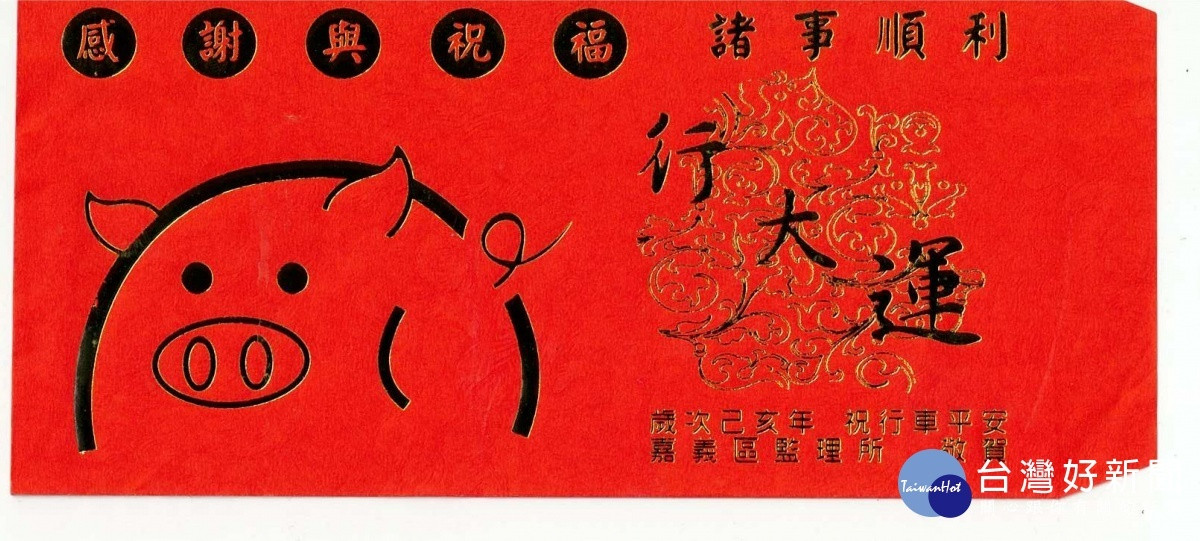 感謝與祝福 諸事順利
行大運
歲次己亥年 祝行車平安
嘉義區監理所 敬賀
TaiwanHot 台灣好新聞